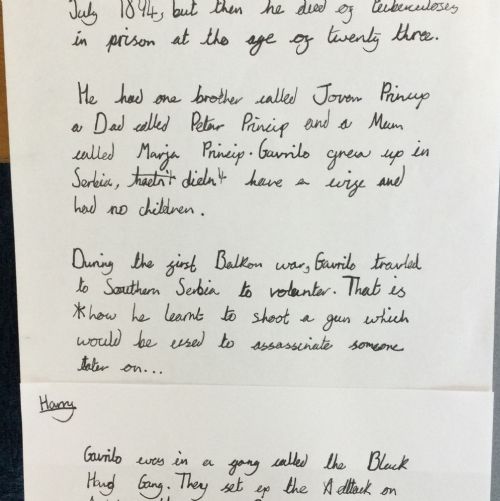 July 1894, but then he died of tuberculoses
in prison at the age of twenty three.
He had one brother called Jovan Princip
a Dad called Petar Princip and a Mum
called Marija Princip. Gavrilo grew up in
Serbia, didn't have a wife and
had no children.
During the first Balkon war, Gavrilo travled
to Southern Serbia to volunter. That is
*how he learnt to shoot a gun which
would be used to assassinate someone
later on...
Harry
Gavrilo was in a gang called the Black
Hand Gang. They set up the Adttack on